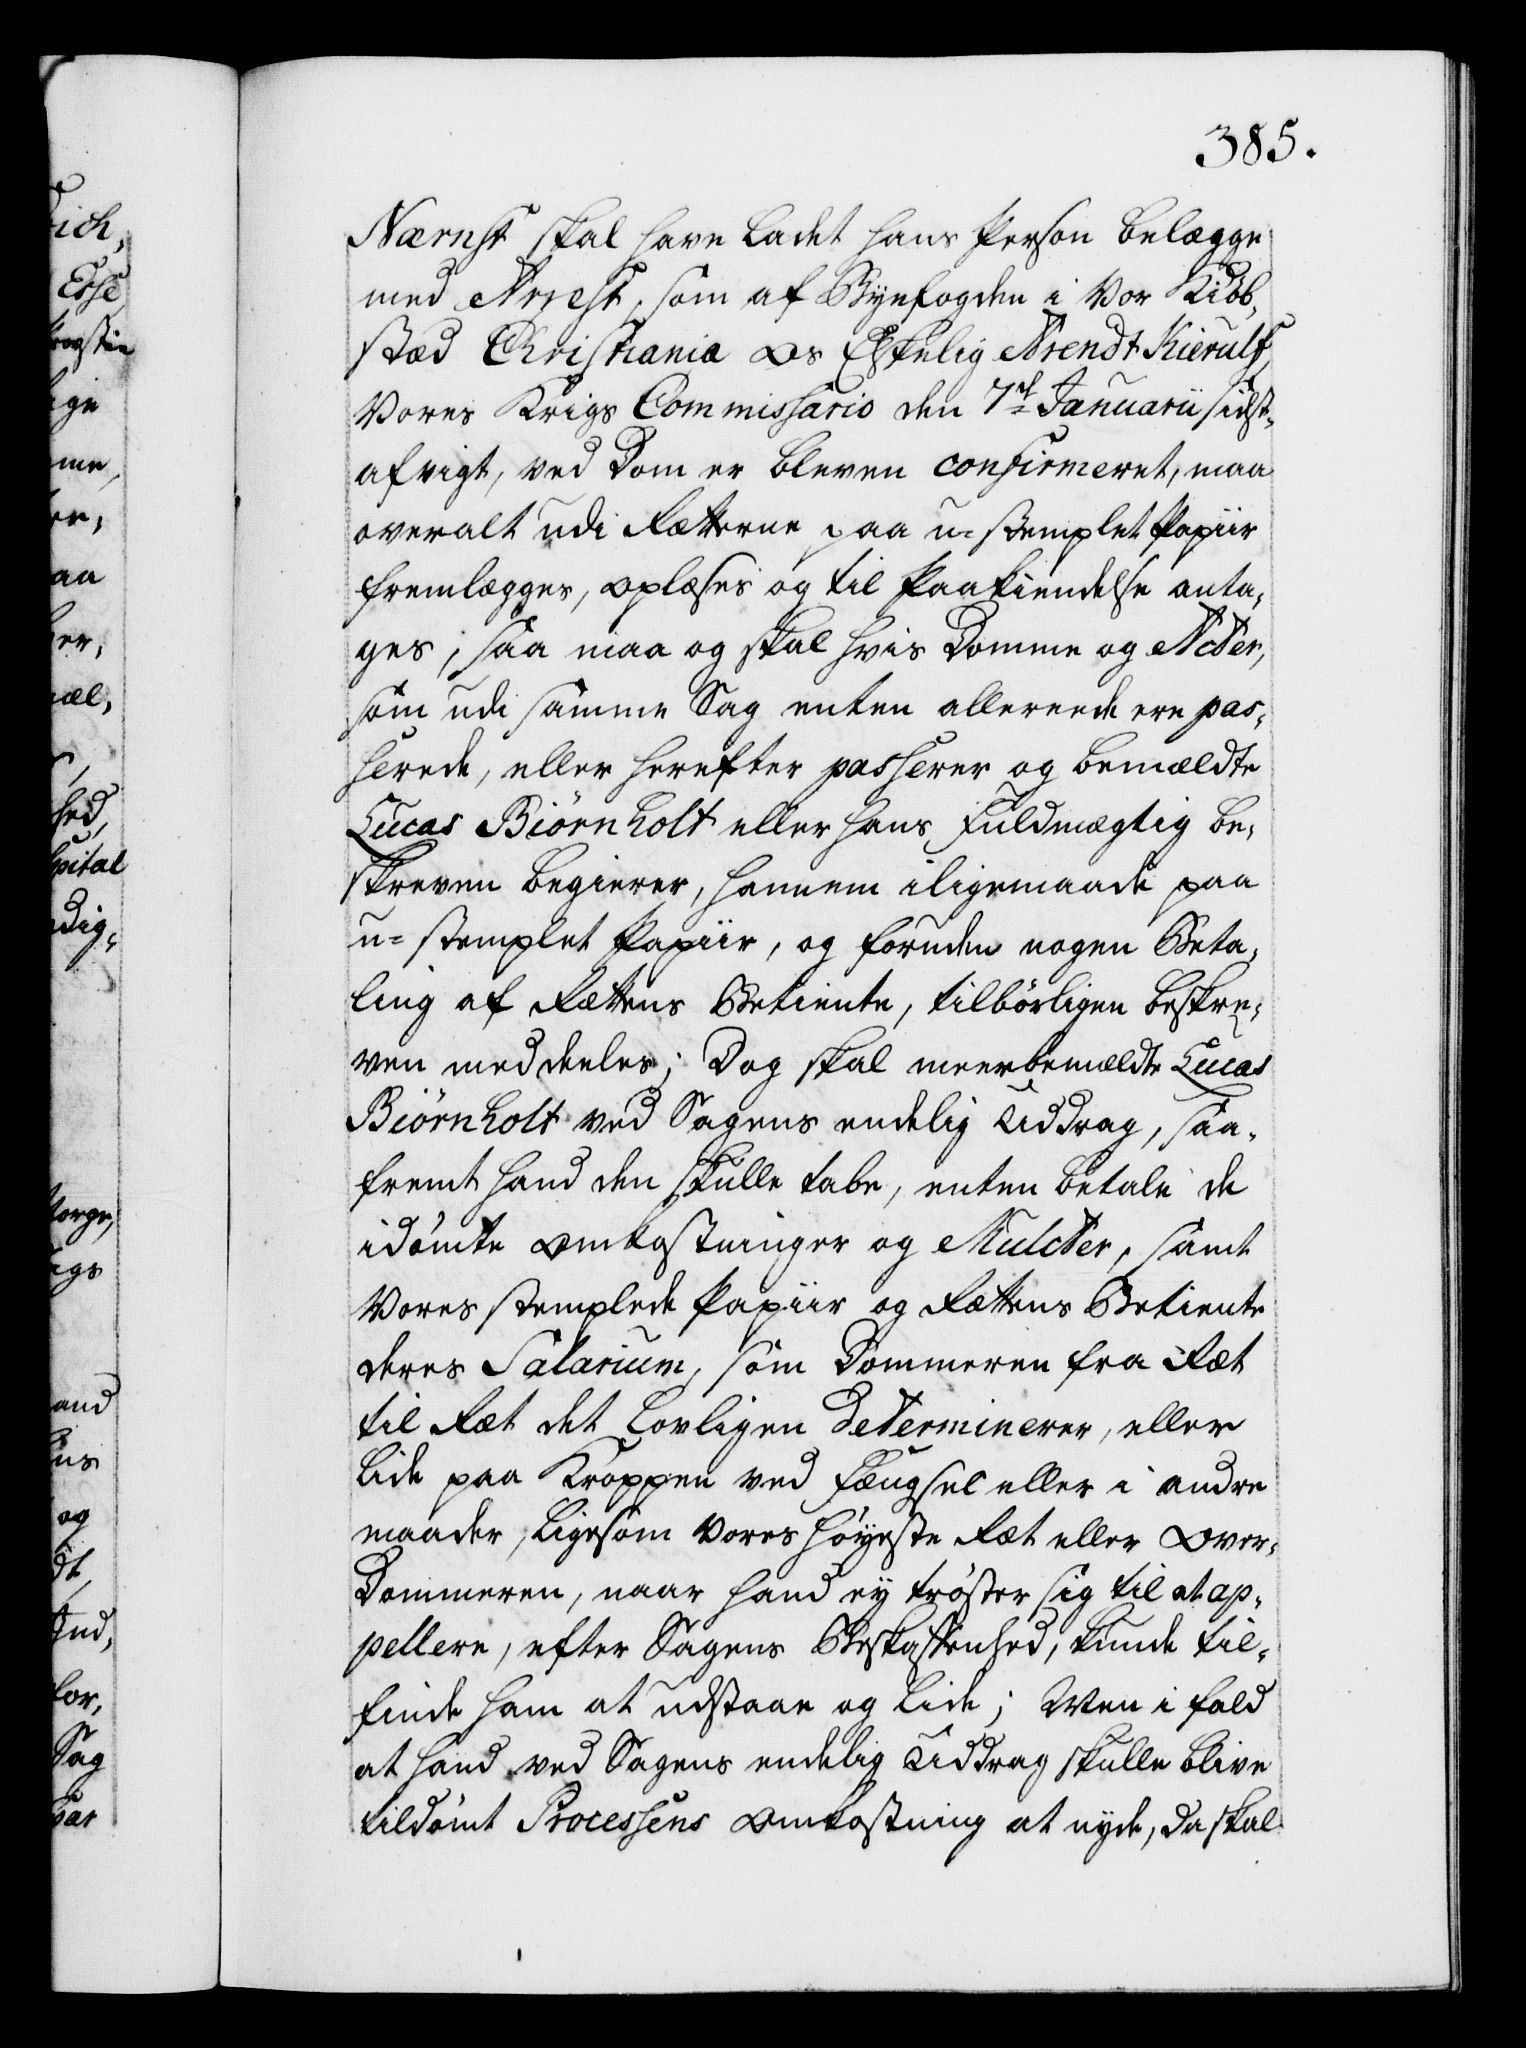 385.
Nærnst skal have ladet hans Person belægge
med Arrest, som af Byefogden i Vor Kiøb,
stæd Christiania Os Elskelig Arendt Kierulf,
Vores Krigs Commissario den 7de Januarii sidst-
afvigt, ved Dom er bleven confirmeret, maa
overalt udi Rætterne paa u-stemplet Papiir
fremlægges, oplæses og til Paakiendelse anta,
ges, saa maa og skal hvis Domme og Acter,
som udi samme Sag enten allereede ere pas,
serede, eller herefter passerer og bemældte
Lucas Biørnholt eller hans Fuldmægtig be,
skreven begierer, hannem iligemaade paa
u-stemplet Papiir, og foruden nogen Beta,
ling af Rættens Betiente, tilbørligen beskre,
ven meddeeles; Dog skal meerbemældte Lucas
Biørnholt ved Sagens endelig Uddrag, saa,
fremt hand den skulle tabe, enten betale de
idømte Omkostninger og Mulcter, samt
Vores stemplede Papiir og Rættens Betiente
deres Salarium, som Dommeren fra Ræt
til Ræt det lovligen determinerer, eller
lide paa Kroppen ved Fængsel eller i andre
maader, ligesom Vores Høyeste Ræt eller Over,
Dommeren, naar hand ey trøster sig til at ap,
pellere, efter Sagens Beskaffenhed, kunde til,
finde ham at udstaae og lide; Men i fald
at hand ved Sagens endelig Uddrag skulle blive
tildømt Processens Omkostning at nyde, da skal